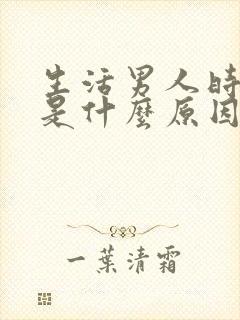 生活男人時
是什麼原因
一葉清霜